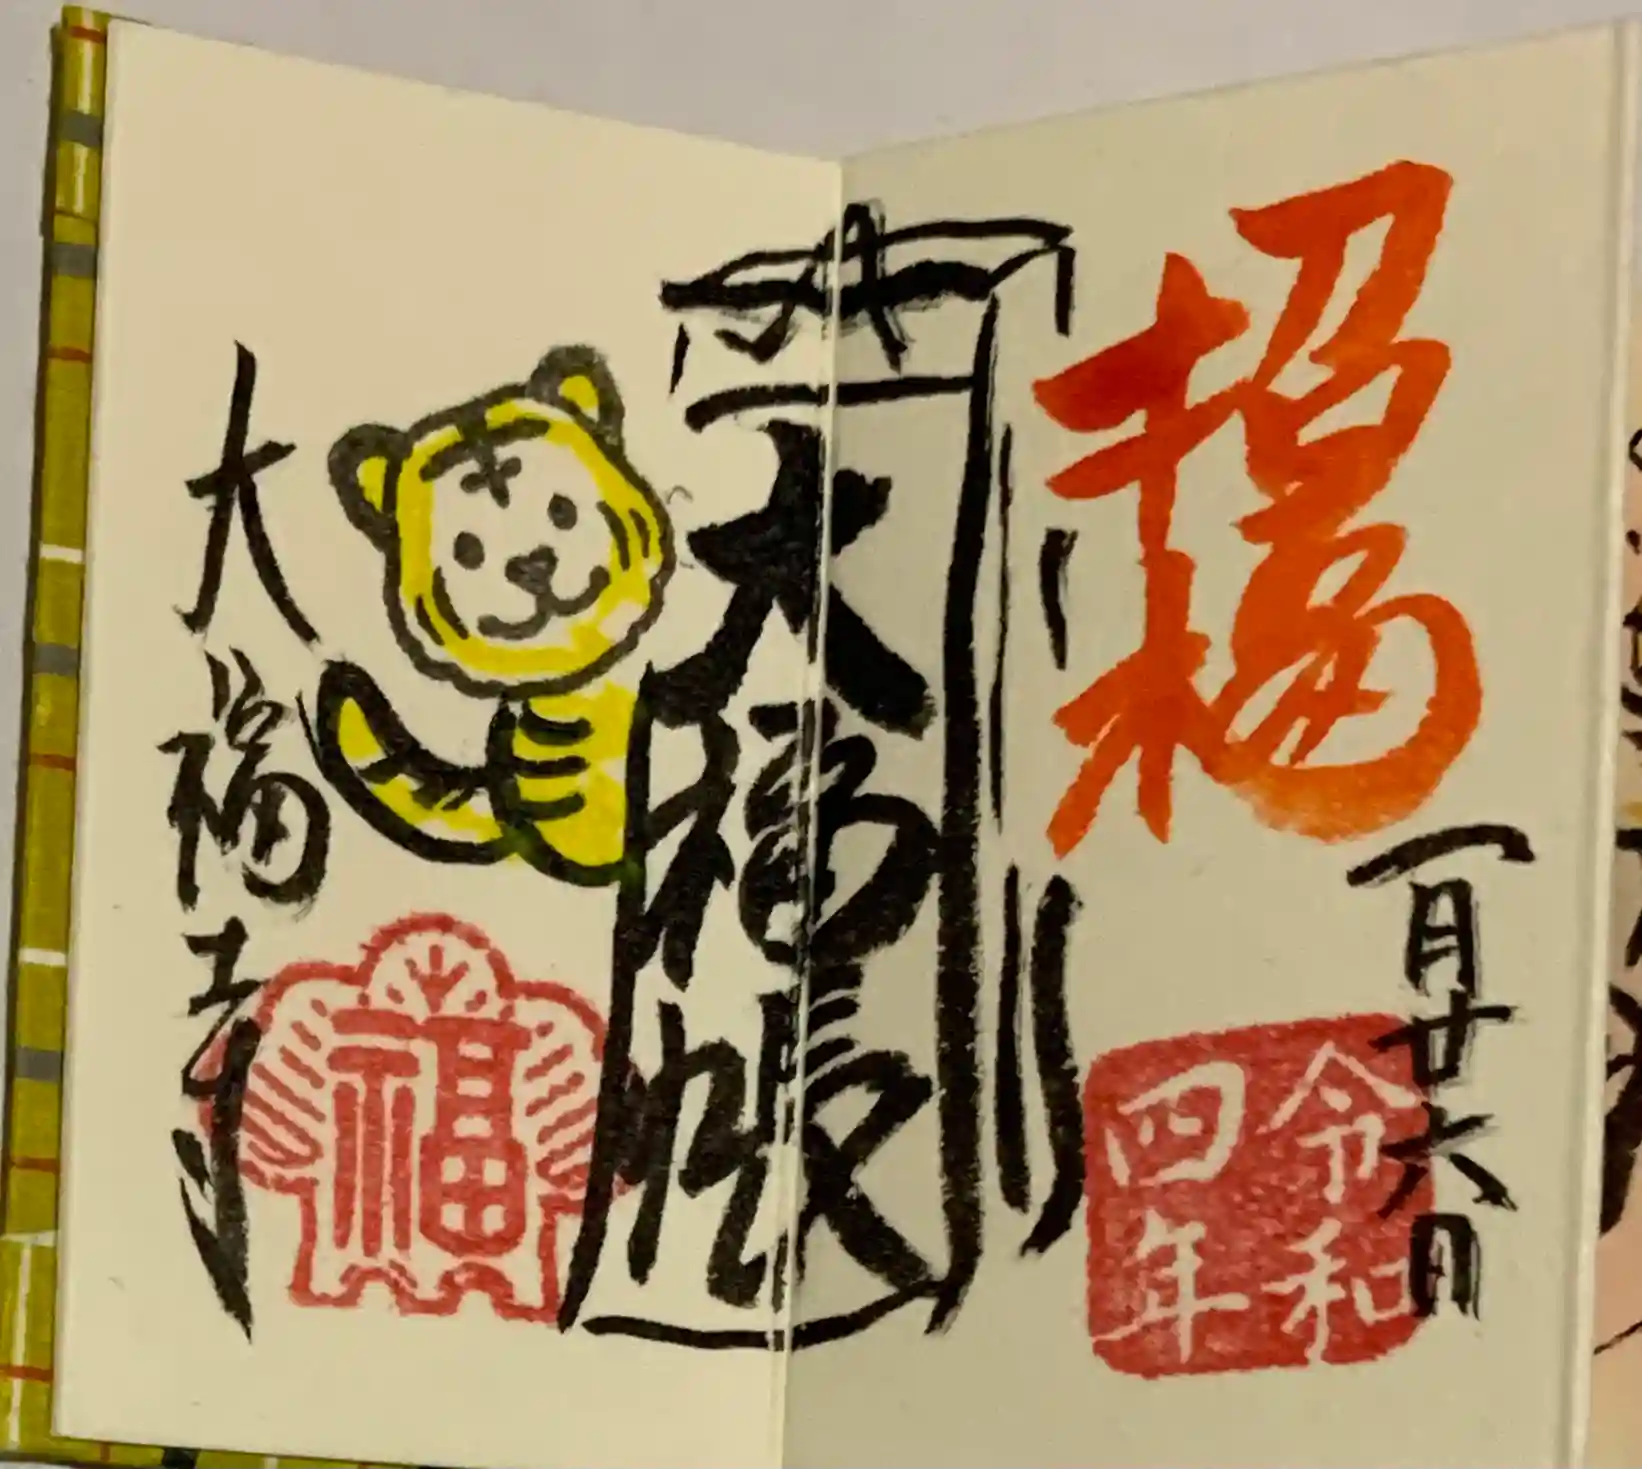 招福
令和四年
一月廿六日
大福帳
大福寺
福